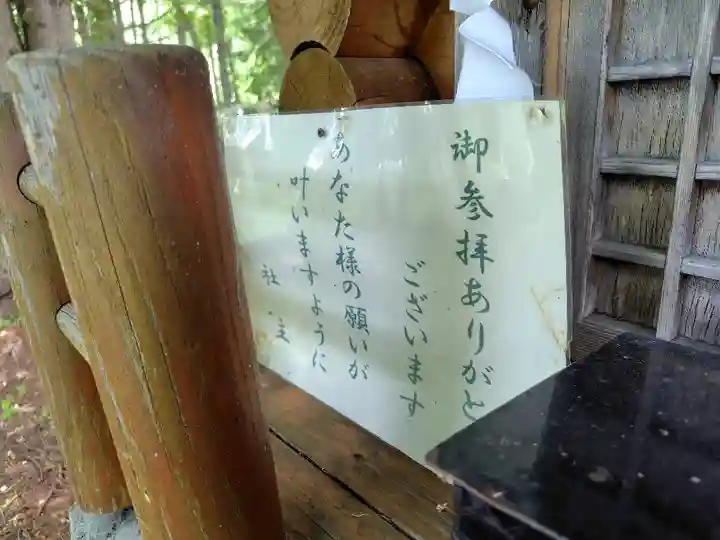 御参拝ありがと
ございます
あなた様の願いが
叶いますように
社主